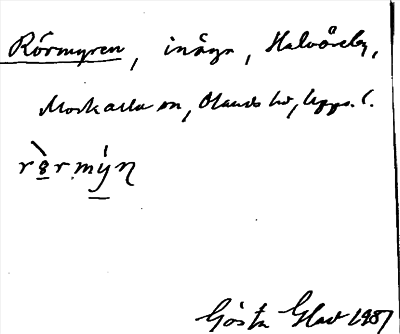 Rörmyren, inäga, Halvörsby,
Morkarla sn, Olands hd, Uppl.
rö̀rmýn
Gösta Glad 1987